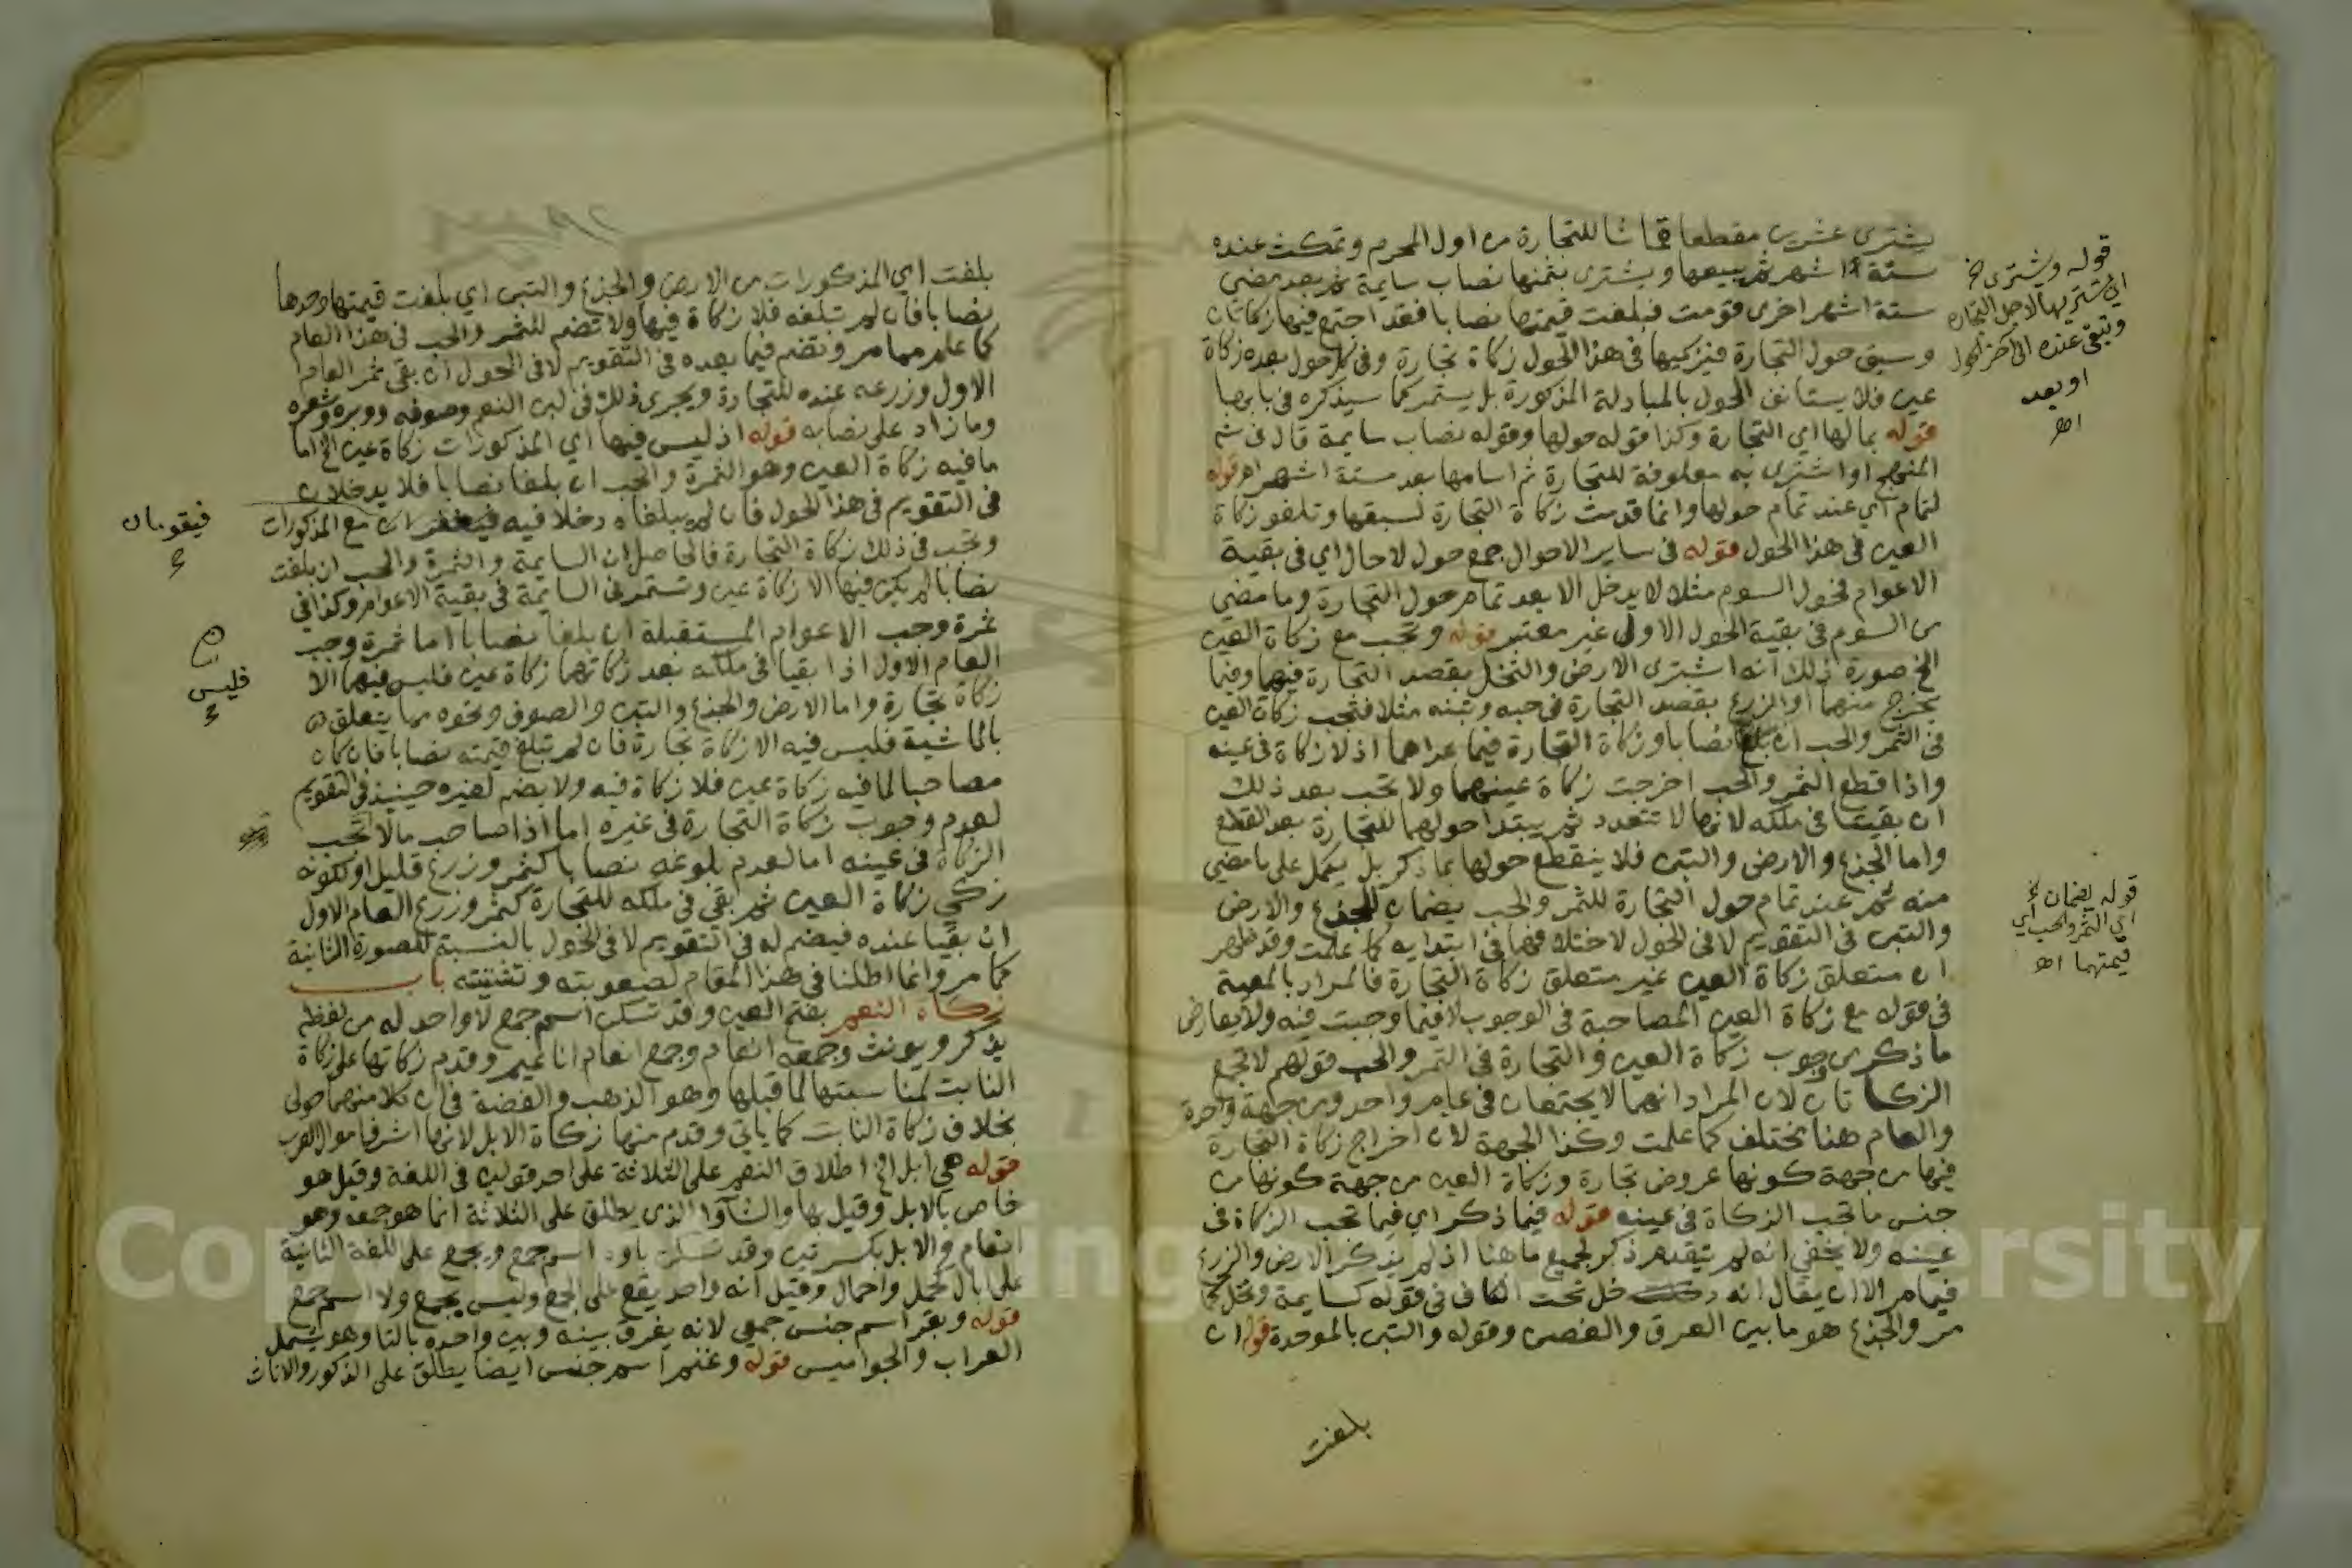 يشترى عشرين مقطعا قماشا للتجارة من اول المحرم وتمكث عنده
ستة اشهر ثم يبيعها ويشترى بثمنها نصاب سايمة ثم بعد مضى
ستة اشهر اخرى قومت فبلغت قيمتها نصابا فقد اجتمع فيها زكاتان
وسبق حول التجارة فيزكيها فى هذا الحول زكاة تجارة وفى كل حول بعده زكاة
عين فلا يستانف الحول بالمبادلة المذكورة بل يستمر كما سيذكره فى بابها
قوله بمالها اي التجارة وكذا قوله حولها وقوله نصاب سايمة قال فى شم
المنهج او اشترى به معلوفة للتجارة ثم اسامها بعد ستة اشهر اهر قوله
لتمام اي عند تمام حولها وانما قدمت زكاة التجارة لسبقها وتلغو زكاة
العين فى هذا الحول قوله فى ساير الاحوال جمع حول لا حال اي فى بقية
الاعوام فحول السوم مثلا لا يدخل الا بعد تمام حول التجارة وما مضى
من السوم فى بقية الحول الاول غير معتبر قوله وتجب مع زكاة العين
الخ صورة ذلك انه اشترى الارض والنخل بقصد التجارة فيها وفيما
يخرج منهما او الزرع بقصد التجارة فى حبه وتبنه مثلا فتجب زكاة العين
فى الثمر والحب ان بلغ نصابا وزكاة التجارة فيما عداهما اذ لا زكاة فى عينه
واذا قطع الثمر والحب اخرجت زكاة عينهما ولا تجب بعد ذلك
ان بقيتا فى ملكه لانها لا تتعدد ثم يبتدا حولهما للتجارة بعد القطع
واما الجذع والارض والتبن فلا ينقطع حولها بما ذكر بل يكمل على ما مضى
منه ثم عند تمام حول التجارة للثمر والحب يضمان للجذع والارض
والتبن فى التقويم لا فى الحول لاختلافهما فى ابتدايه كما علمت وقد ظهر
ان متعلق زكاة العين غير متعلق زكاة التجارة فالمراد بالمعية
فى قوله مع زكاة العين المصاحبة فى الوجوب لا فيما وجبت فيه ولا يعارض
ما ذكر من وجوب زكاة العين والتجارة فى الثمر والحب قولهم لا تجمع
الزكاتان لان المراد انهما لا يجتمعان فى عام واحد ومن جهة واحدة
والعام هنا يختلف كما علمت وكذا الجهة لان اخراج زكاة التجارة
فيها من جهة كونها عروض تجارة وزكاة العين من جهة كونها من
جنس ما تجب الزكاة فى عينه قوله فيما ذكر اي فيما تجب الزكاة فى
عينه ولا يخفى انه لم يتقدم ذكر لجميع ما هنا اذ لم يذكر الارض والزرع
فيما مر الا ان يقال انه دخل تحت الكاف فى قوله كسايمة ونخل كما
مر والجذع هو ما بين العرق والغصن وقوله والتبن بالموحدة قوله ان
بلغت
قوله ويشترى الخ
اي يشتريها لاجل التجارة
وتبقى عنده الى اخر الحول
او بعد
اهر
قوله يضمان الخ
اي الثمر والحب اي
قيمتهما اهر
بلغت اي المذكورات من الارض والجذع والتبن اي بلغت قيمتها وحدها
نصابا فان لم تبلغه فلا زكاة فيها ولا تضم للثمر والحب فى هذا العام
كما علم مما مر وتضم فيما بعده فى التقويم لا فى الحول ان بقى ثمر العام
الاول وزرعه عنده للتجارة ويجرى ذلك فى لبن النعم وصوفه ووبره وشعره
وما زاد على نصابه قوله اذ ليس فيها اي المذكورات زكاة عين الخ اما
ما فيه زكاة العين وهو الثمرة والحب ان بلغا نصابا فلا يدخلان
فى التقويم فى هذا الحول فان لم يبلغاه دخلا فيه مع المذكورات
وتجب فى ذلك زكاة التجارة فالحاصل ان السايمة والثمرة والحب ان بلغت
نصابا لم يكن فيها الا زكاة عين وتستمر فى السايمة فى بقية الاعوام وكذا فى
ثمرة وحب الاعوام المستقبلة ان بلغا نصابا اما ثمرة وحب
العام الاول اذا بقيا فى ملكه بعد زكاتهما زكاة عين فليس فيهما الا
زكاة تجارة واما الارض والجذع والتبن والصوف ونحوه مما يتعلق
بالماشية فليس فيه الا زكاة تجارة فان لم تبلغ قيمته نصابا فان كان
مصاحبا لما فيه زكاة عين فلا زكاة فيه ولا يضم لغيره حينيذ فى التقويم
لعدم وجوب زكاة التجارة فى غيره اما اذا صاحب ما لا تجب
الزكاة فى عينه اما لعدم بلوغه نصابا كثمر وزرع قليل او لكونه
زكي زكاة العين ثم بقي فى ملكه للتجارة كثمر وزرع العام الاول
ان بقيا عنده فيضم له فى التقويم لا فى الحول بالنسبة للصورة الثانية
كما مر وانما اطلنا فى هذا المقام لصعوبته وتشتيته باب
زكاة النعم بفتح العين وقد تسكن اسم جمع لا واحد له من لفظه
يذكر ويونث وجمعه انعام وجمع انعام اناعيم وقدم زكاتها على زكاة
النابت لمناسبتها لما قبلها وهو الذهب والفضة فى ان كلا منهما حولى
بخلاف زكاة النابت كما ياتى وقدم منها زكاة الابل لانها اشرف اموال العرب
قوله هي ابل الخ اطلاق النعم على الثلاثة على احد قولين فى اللغة وقيل هو
خاص بالابل وقيل بها والشاة والذى يطلق على الثلاثة انما هو جمعه وهو
انعام والابل بكسرتين وقد تسكن باوه اسم جمع ويجمع على اللغة الثانية
على ابال كحمل واحمال وقيل انه واحد يقع على الجمع وليس بجمع ولا اسم جمع
قوله وبقر اسم جنس جمعي لانه يفرق بينه وبين واحده بالتا وهو يشمل
العراب والجواميس قوله وغنم اسم جنس ايضا يطلق على الذكور والاناث
فيقومان
فليس